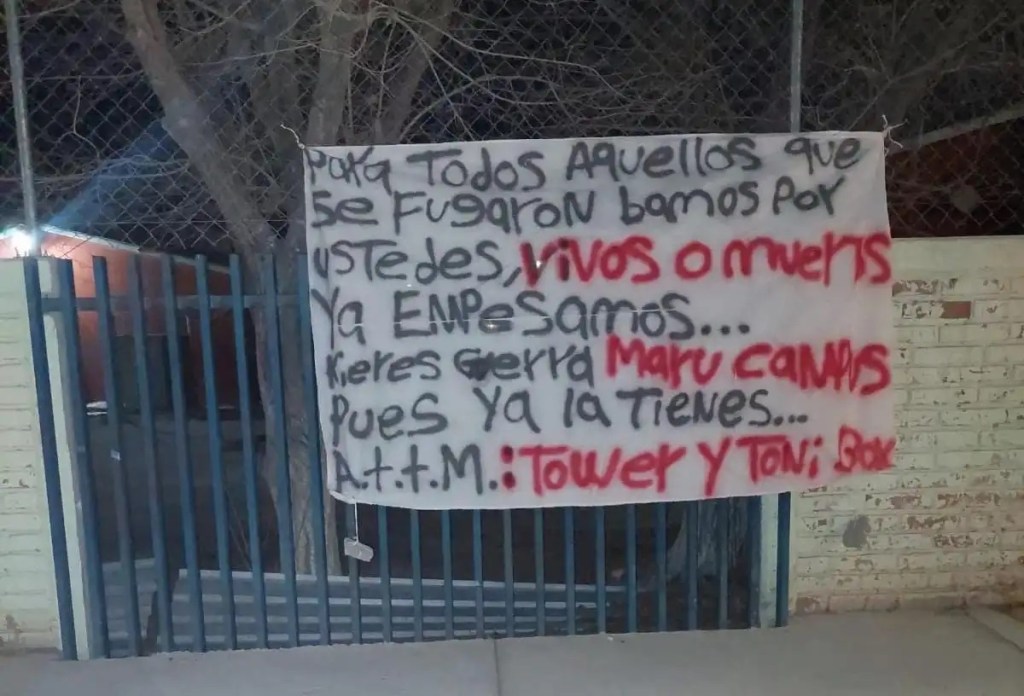 PARA TODOS AQUELLOS que
Se FUgaRON bamos POR
USTEDES, VIVOS O MUERTS
Ya EMPESamos...
Kieres Gerra MARU CAMPOS
PUES Ya la TIENES...
A.t.t.M.: TOWER Y TONi BOX